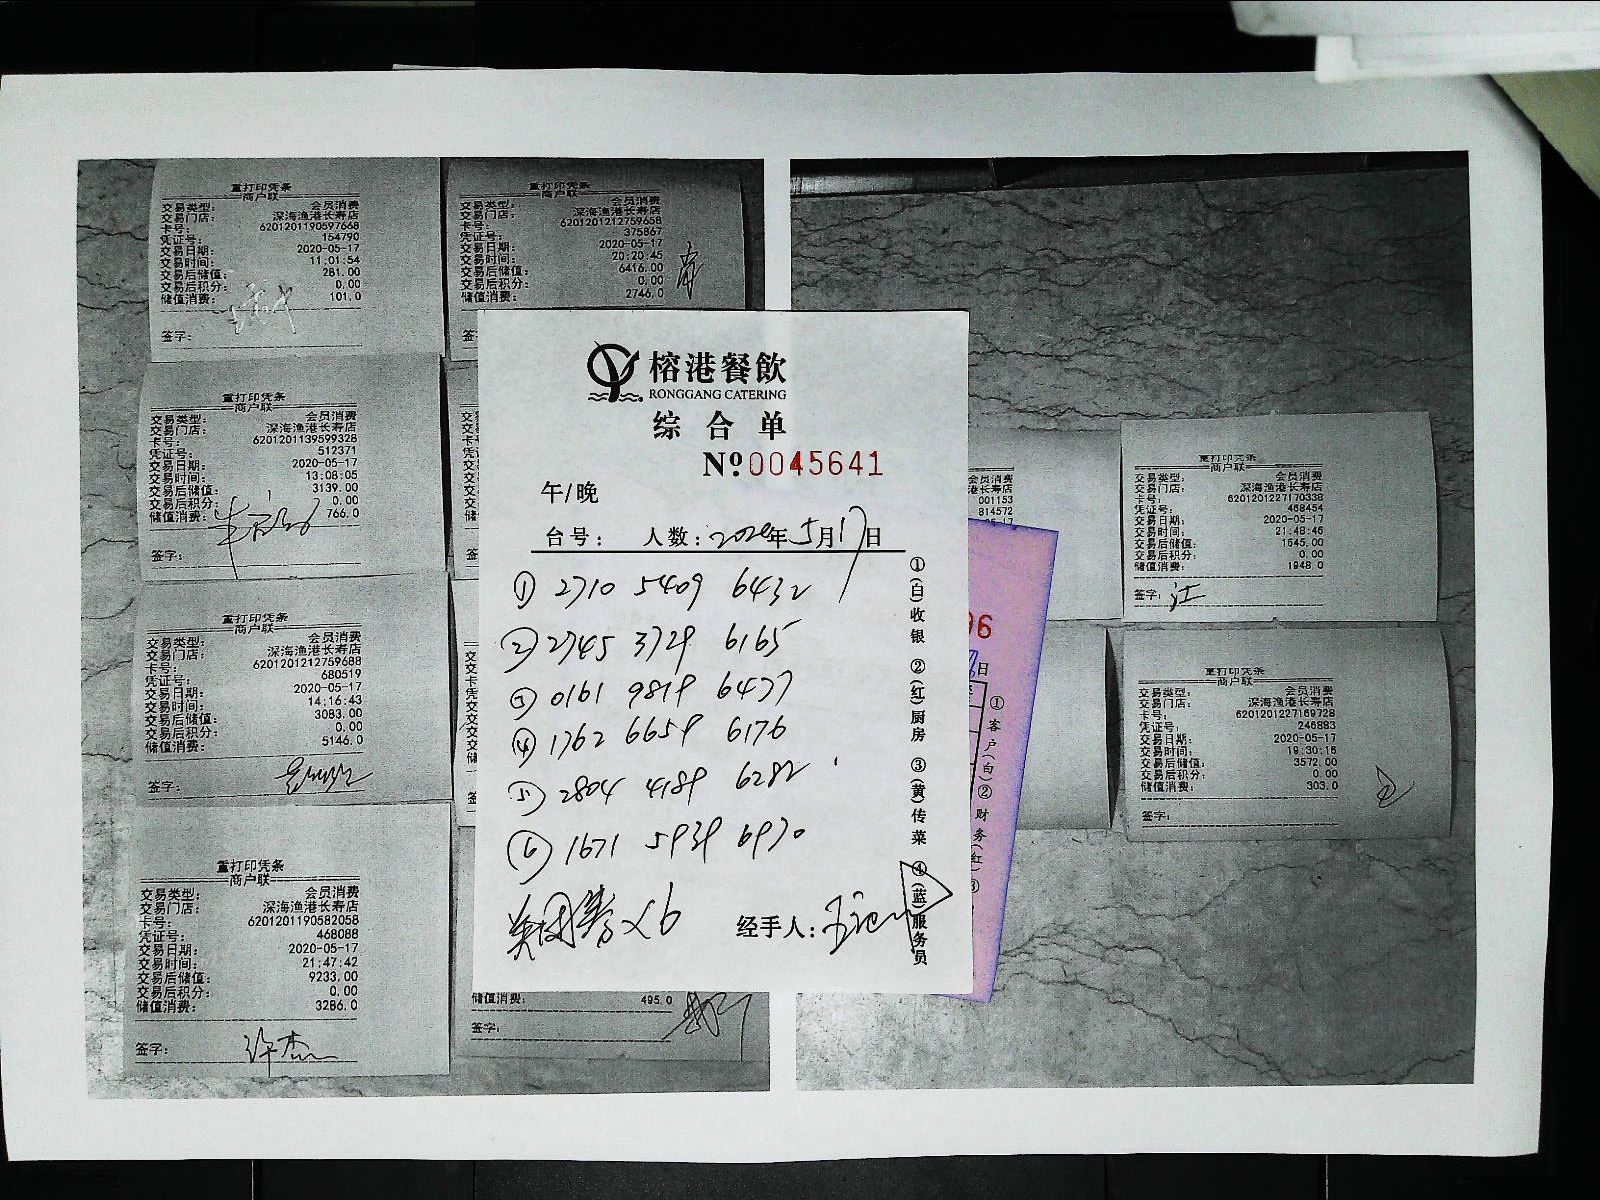 重打印凭条
商户联
交易类型: 会员消费
交易门店: 深海渔港长寿店
卡号: 6201201190597668
凭证号: 154790
交易日期: 2020-05-17
交易时间: 11:01:54
交易后储值: 281.00
交易后积分: 0.00
储值消费: 101.0
签字:
重打印凭条
商户联
交易类型: 会员消费
交易门店: 深海渔港长寿店
卡号: 6201201212759658
凭证号: 375867
交易日期: 2020-05-17
交易时间: 20:20:45
交易后储值: 6416.00
交易后积分: 0.00
储值消费: 2746.0
签
重打印凭条
商户联
交易类型: 会员消费
交易门店: 深海渔港长寿店
卡号: 6201201139599328
凭证号: 512371
交易日期: 2020-05-17
交易时间: 13:08:05
交易后储值: 3139.00
交易后积分: 0.00
储值消费: 766.0
签字:
重打印凭条
商户联
交易类型: 会员消费
交易门店: 深海渔港长寿店
卡号: 6201201212759688
凭证号: 680519
交易日期: 2020-05-17
交易时间: 14:16:43
交易后储值: 3083.00
交易后积分: 0.00
储值消费: 5146.0
签字:
重打印凭条
商户联
交易类型: 会员消费
交易门店: 深海渔港长寿店
卡号: 6201201190582058
凭证号: 468088
交易日期: 2020-05-17
交易时间: 21:47:42
交易后储值: 9233.00
交易后积分: 0.00
储值消费: 3286.0
签字: 许杰
储值消费: 495.0
签字:
榕港餐飲
RONGGANG CATERING
综合单
№0045641
午/晚
台号: 人数: 2020年5月17日
① 2710 5409 6432
② 2745 3729 6165
③ 0161 9819 6477
④ 1762 6659 6176
⑤ 2804 4189 6282
⑥ 1671 5939 6970
美团券×6 经手人:
①(白)收银 ②(红)厨房 ③(黄)传菜 ④(蓝)服务员
96
日
①客户(白)②财务(红)③
会员消费
港长寿店
001153
814572
重打印凭条
商户联
交易类型: 会员消费
交易门店: 深海渔港长寿店
卡号: 6201201227170338
凭证号: 468454
交易日期: 2020-05-17
交易时间: 21:48:46
交易后储值: 1645.00
交易后积分: 0.00
储值消费: 1948.0
签字: 江
重打印凭条
商户联
交易类型: 会员消费
交易门店: 深海渔港长寿店
卡号: 6201201227169728
凭证号: 246883
交易日期: 2020-05-17
交易时间: 19:30:16
交易后储值: 3572.00
交易后积分: 0.00
储值消费: 303.0
签字: